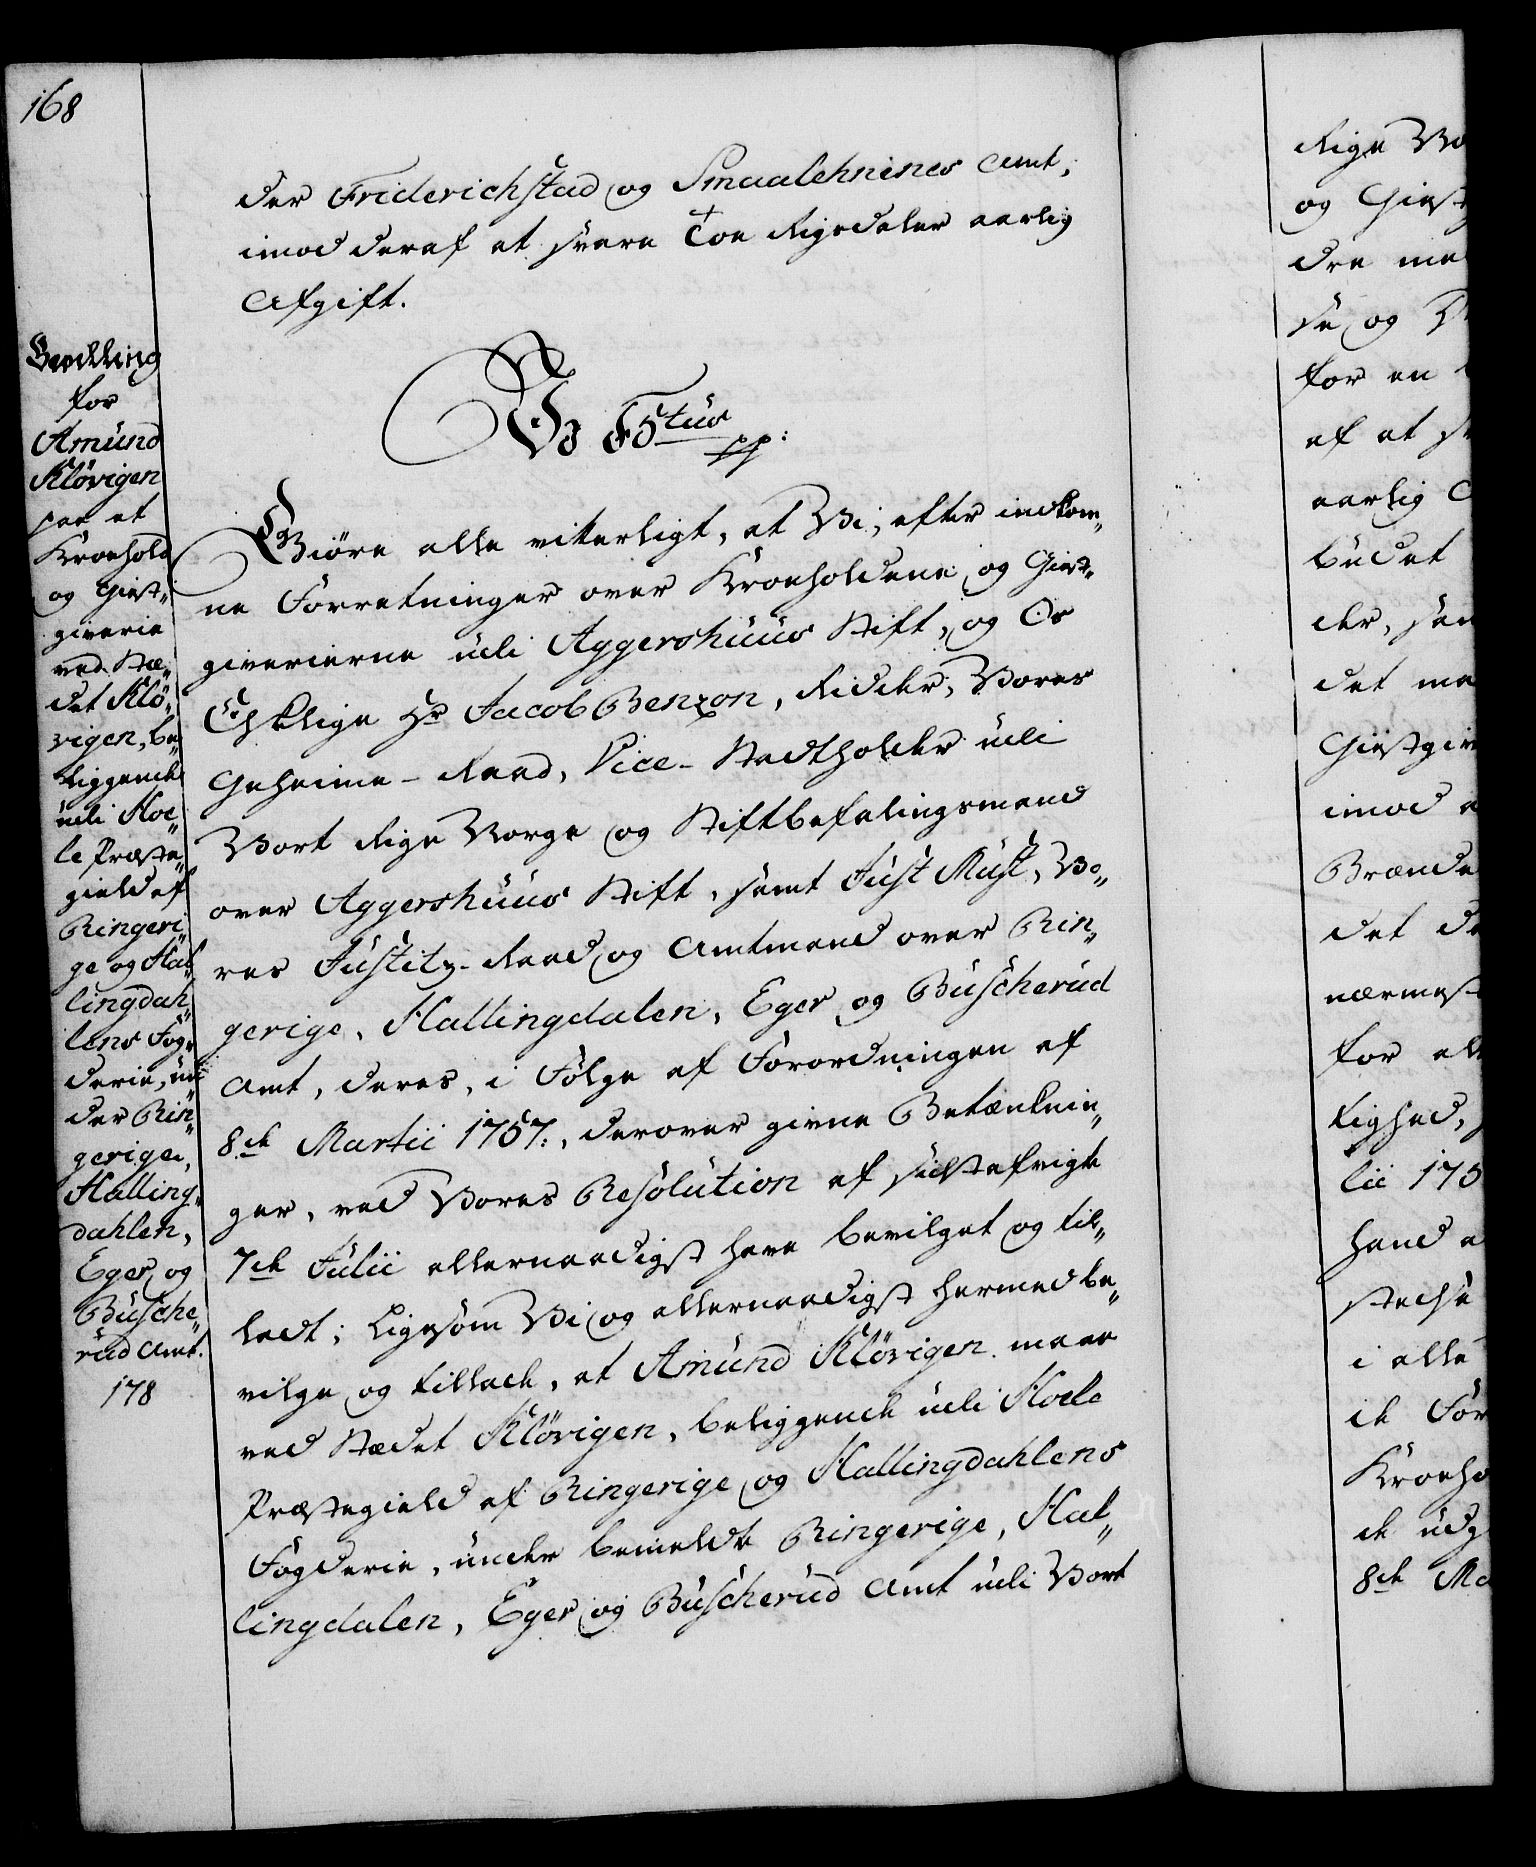 168
der Friderichstad og Smaalehnenes Amt,
imod deraf at svare Toe Rigsdaler aarlig
Afgift.
Bevilling
for
Amund
Kløvigen
paa et
Kroehold
og Giest-
giverie
ved Stæ-
det Klø-
vigen, be-
liggende
udi Hoe-
le Præste-
gield af
Ringeri-
ge og Hal-
lingdah-
lens Fog-
derie, un-
der Rin-
gerige,
Halling-
dahlen,
Eger og
Busche-
rud Amt.
178
Vi F5tus pp:
Giøre alle vitterligt, at Vi, efter indkom-
ne Forretninger over Kroeholdene og Giest-
giverierne udi Aggershuus Stift, og Os
Elskelige Hr Jacob Benzon, Ridder, Vores
Geheime-Raad, Vice-Stadtholder udi
Vort Rige Norge og Stiftbefalingsmand
over Aggershuus Stift, samt Just Must, Vo-
res Justitz-Raad og Amtmand over Rin-
gerige, Hallingdalen, Eger og Buscherud
Amt, deres, i Følge af Forordningen af
8de Martii 1757., derover givne Betænknin-
ger, ved Vores Resolution af sidstafvigte
7de Julii allernaadigst have bevilget og til-
ladt; ligesom Vi og allernaadigst hermed be-
vilge og tillade, at Amund Kløvigen maae
ved Stædet Kløvigen, beliggende udi Hoele
Præstegield af Ringerige og Hallingdahlens
Fogderie, under bemeldte Ringerige, Hal-
lingdalen, Eger og Buscherud Amt udi Vort
Rige No
og Giestg
dre me
se og D
for en
af at sv
aarlig
budet
der, sam
det me
Giestgiv
imod
Brænde
det
nærmest
for all
tighed,
lii 175
hand
stedse
i alle
de For
Kroeho
de udg
8de Ma